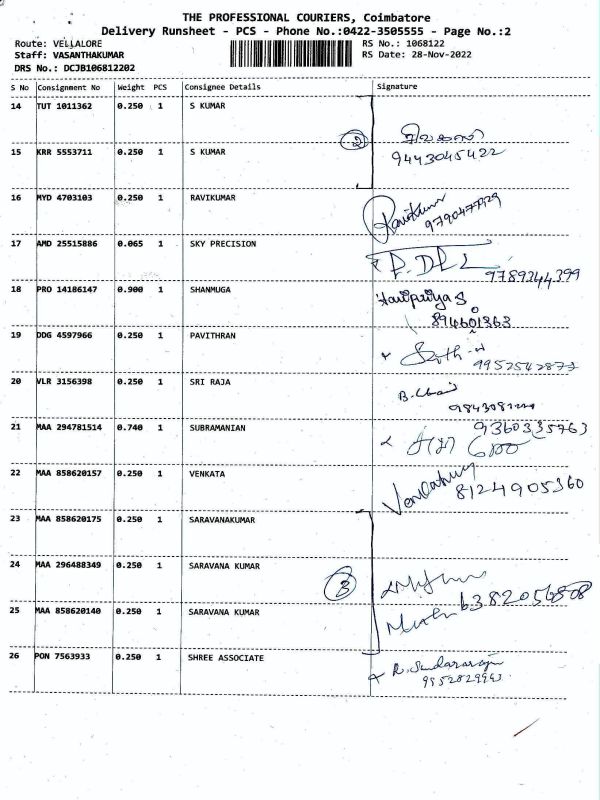 THE PROFESSIONAL COURIERS, Coimbatore
Delivery Runsheet - PCS - Phone No.:0422-3505555 - Page No.:2
Route: VELLALORE RS No.: 1068122
Staff: VASANTHAKUMAR RS Date: 28-Nov-2022
DRS No.: DCJB106812202
S No Consignment No Weight PCS Consignee Details Signature
14 TUT 1011362 0.250 1 S KUMAR
2
15 KRR 5553711 0.250 1 S KUMAR
9443045422
16 MYD 4703103 0.250 1 RAVIKUMAR
Ravikumar
17 AMD 25515886 0.065 1 SKY PRECISION
9789344399
18 PRO 14186147 0.900 1 SHANMUGA
Haripriya S
19 DDG 4597966 0.250 1 PAVITHRAN
20 VLR 3156398 0.250 1 SRI RAJA
21 MAA 294781514 0.740 1 SUBRAMANIAN
9360335763
22 MAA 858620157 0.250 1 VENKATA
8124905360
23 MAA 858620175 0.250 1 SARAVANAKUMAR
24 MAA 296488349 0.250 1 SARAVANA KUMAR
3
25 MAA 858620140 0.250 1 SARAVANA KUMAR
26 PON 7563933 0.250 1 SHREE ASSOCIATE
R. Sundararaju